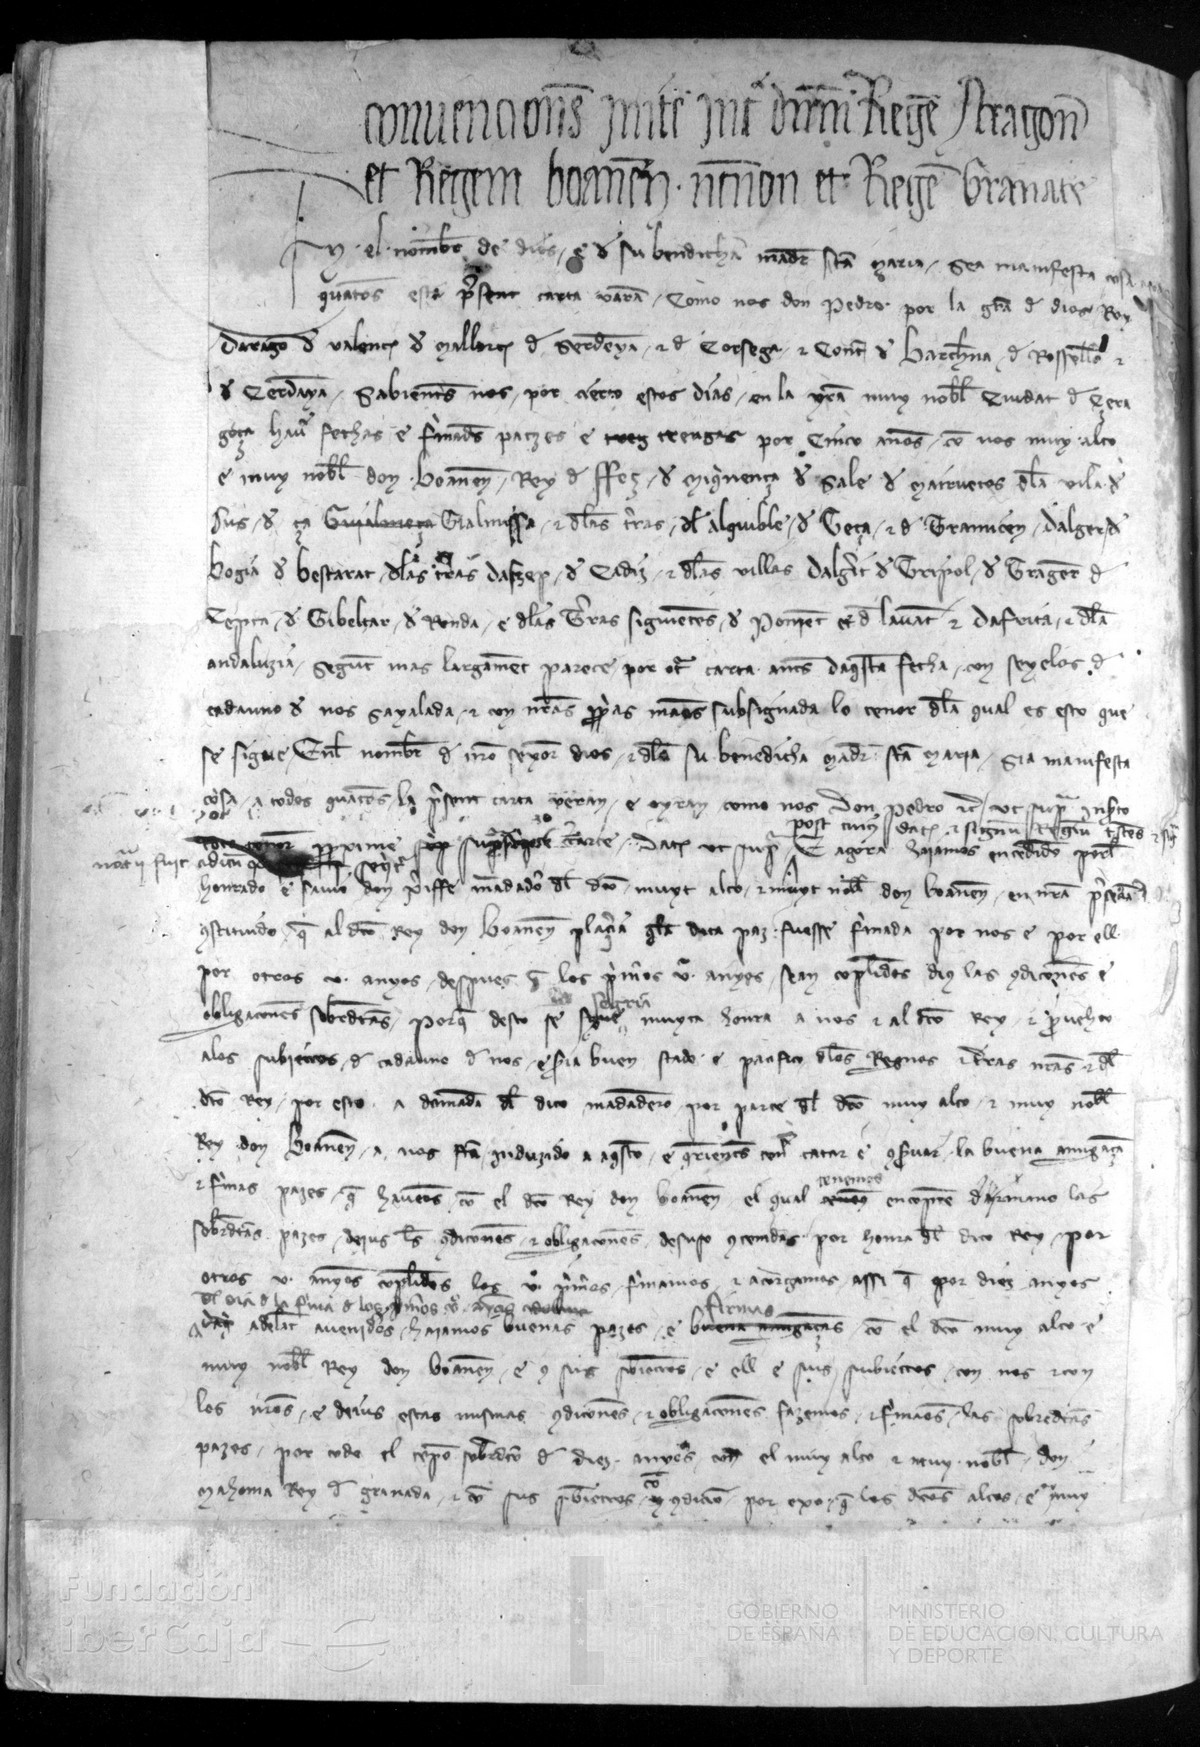 Convenciones inite int dnm Regē Aragon
et Regem boanen necnon et Regē Granate
En el nombre de dios e de su bendicha madre sta maria Sea manifesta cosa
quantos esta present carta veran Como nos don Pedro por la gra de dios Rey
Darago de valenc de Mallorc de Serdenya et de Corsega et Cont de Barchna de Rossello et
de Cerdanya Sabients nos por cierto estos dias en la nra muy nobl Ciudat de Çera
goça hau fechas e firmads pazes e treugas por Cinco anos co vos muy alto
e muy nobl don boanen Rey de ffez de Miquença de Sale de Marruecos dla vila de
Sus de ça Gialmissa et dlas tras dl alquible de Teça et de Tramicen Dalger de
bogia de bestarat dlas tras dafzep de Cadiz et dlas villas dalgrit de Tripol de Trager de
Cepta de Gibeltar de Ronda e dlas Tras siguientes de Ponent et de levant et Dafrica et dla
andaluzia segut mas largament parece por otra carta ants daqsta fecha con seyelos de
cadauno de nos sayalada et con nras pprias manos subsignada lo tenor dla qual es esto que
se sigue Enl nombr de nro senyor dios et dla su benedicha madr sta maria Sia manifesta
cosa a todos quantos la present carta veran e oyran como nos Don Pedro etc ut supra
post cuius dat et signu Regiu testes et
carte Dat ut supra E agora hajamos encedido porl
honrado e savio don mandadero dl dco muyt alto et muyt nobl don boanen en nra presencia
constituido q al dco Rey don boanen plazia qla dita paz fuesse firmada por nos e por ell
por otros v anyos despues q los primos v anyos sean coplidos dius las condiciones e
obligaciones sobredtas Porq desto se seguia muyta honra a nos et al dco Rey et pvecho
alos subiectos de cadauno de nos e sia buen stado e pacifico dlos Regnos et tras nras et dl
dco Rey por esto a demada dl dito madadero por parte dl dco muy alto et muy nobl
Rey don boanen a nos induzido a aqsto e qrientes catar e qservar la buena amigaça
et firmas pazes q havems co el dco Rey don boanen el qual tenemos en copte dermano las
sobredtas pazes deius ls condiciones et obligaciones desuso contenidas por honra dl dico Rey por
otros v anyos coplidos los v primos firmamos et atorgamos assi q por diez anyos
dl dia de la firma de los primos v anyos
adelat avenidos hajamos buenas pazes e firmas co el dco muy alto e
muy nobl Rey don boanen e con sus subiectos e ell e sus subiectos con nos et con
los nros e deius estas mismas condiciones et obligaciones fazemos et firmamos las sobredtas
pazes por todo el tepo sobredco de diez anyos con el muy alto et muy nobl don
Mahoma Rey de granada et co sus subiectos co condicio por expo q los dcos altos e muy
Fundación
iberCaja
GOBIERNO
DE ESPAÑA
MINISTERIO
DE EDUCACIÓN, CULTURA
Y DEPORTE